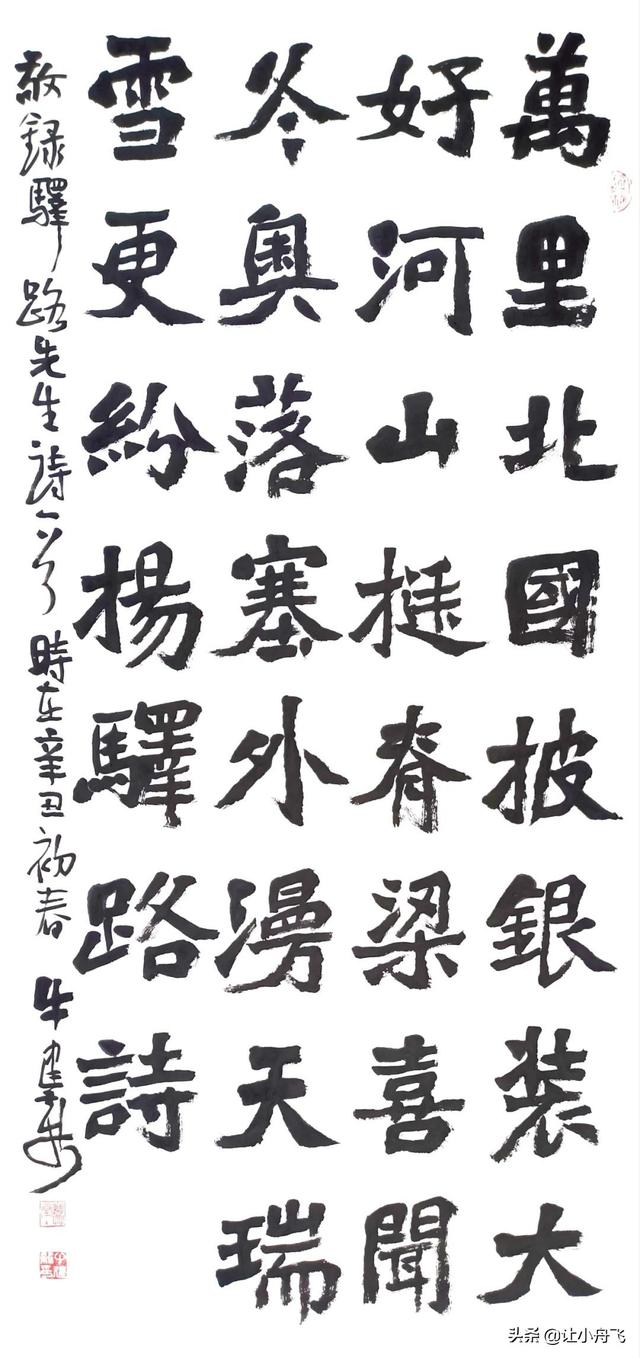 萬里北國披銀裝大
好河山挺脊梁喜聞
冬奥落塞外漫天瑞
雪更紛揚驛路詩
敬録驛路先生詩一首時在辛丑初春 牛
头条 @让小舟飞